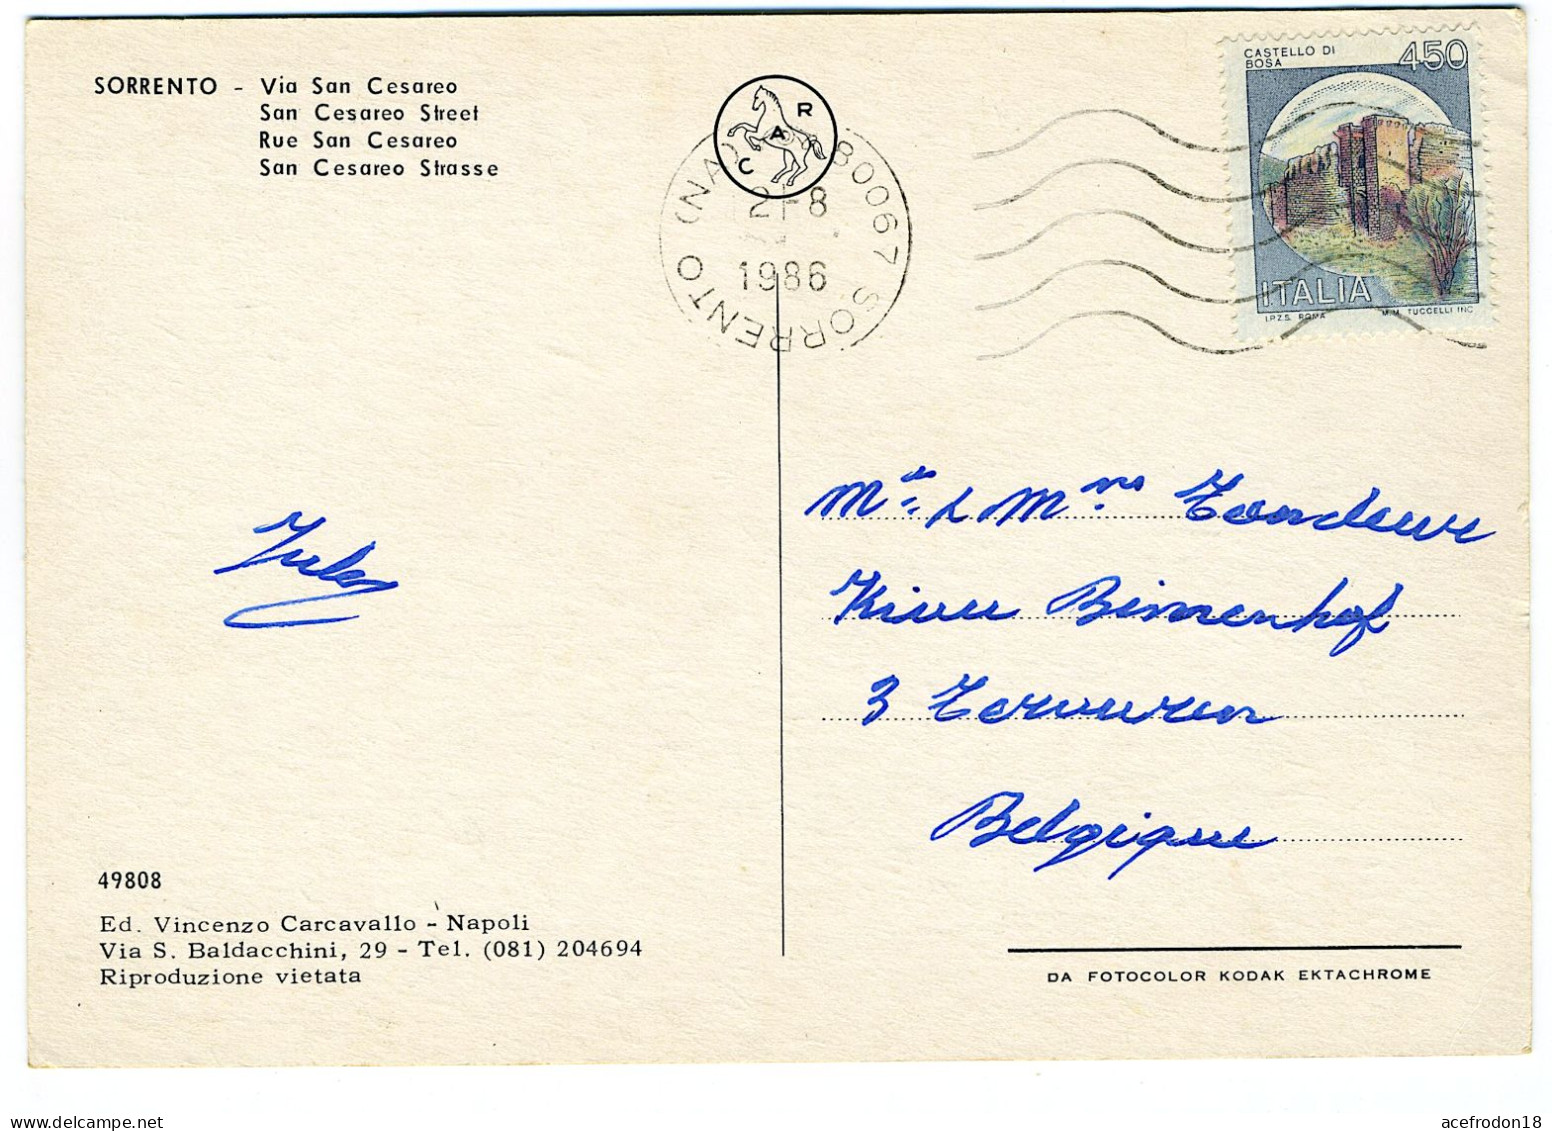 SORRENTO - Via San Cesareo
San Cesareo Street
Rue San Cesareo
San Cesareo Strasse
CAR
80067 SORRENTO (NA)
21-8
1986
CASTELLO DI
BOSA
450
ITALIA
I.P.Z.S. ROMA M.M. TUCCELLI INC.
Jules
Mr & Mme
Binnenhof
3 Tervuren
Belgique
49808
Ed. Vincenzo Carcavallo - Napoli
Via S. Baldacchini, 29 - Tel. (081) 204694
Riproduzione vietata
DA FOTOCOLOR KODAK EKTACHROME
acefrodon18